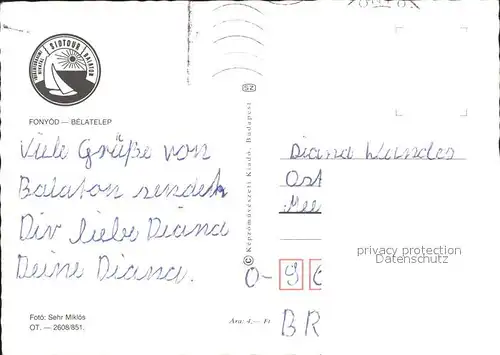 SIOTOUR
BALATON
FONYÓD — BÉLATELEP
Viele Grüße von
Balaton sendet
Dir liebe Diana
Deine Diana.
Fotó: Sehr Miklós
OT. — 2608/851.
Ára: 4,— Ft
© Képzőművészeti Kiadó, Budapest
SZ
Diana
Ost
Mee
O-9
BR
privacy protection
Datenschutz